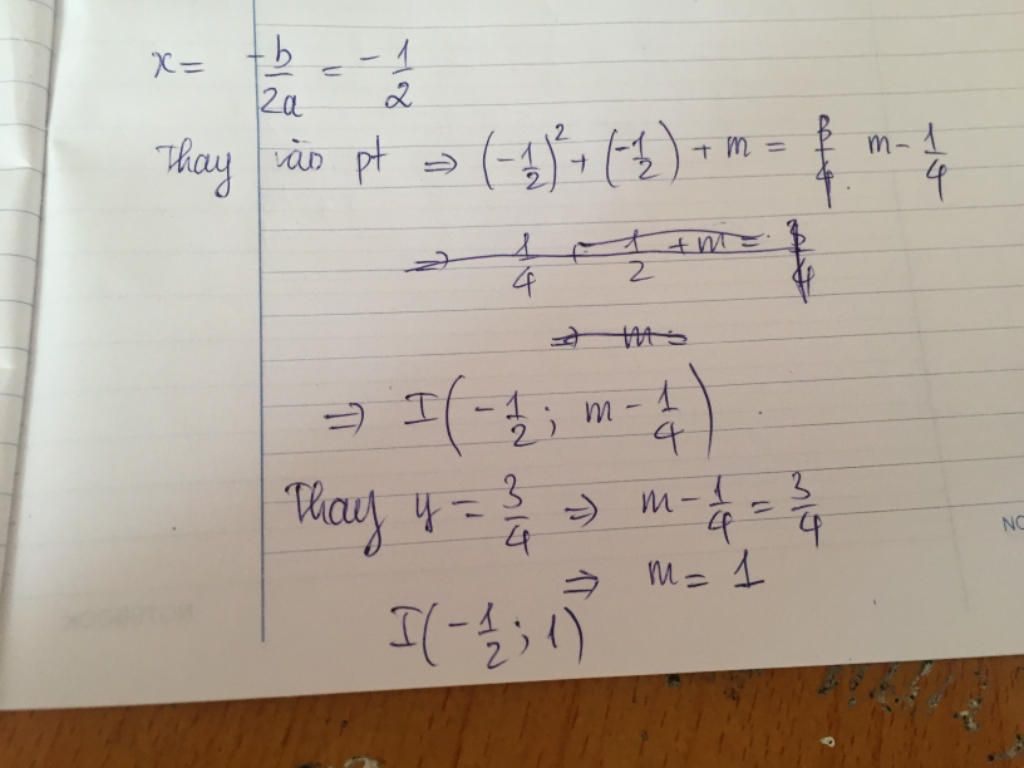 x = -b/2a = -1/2
Thay vào pt ⇒ (-1/2)² + (-1/2) + m = m - 1/4
⇒ 1/4 + 1/2 + m = 3/4
⇒ m =
⇒ I(-1/2; m - 1/4)
Thay y = 3/4 ⇒ m - 1/4 = 3/4
⇒ m = 1
I(-1/2; 1)